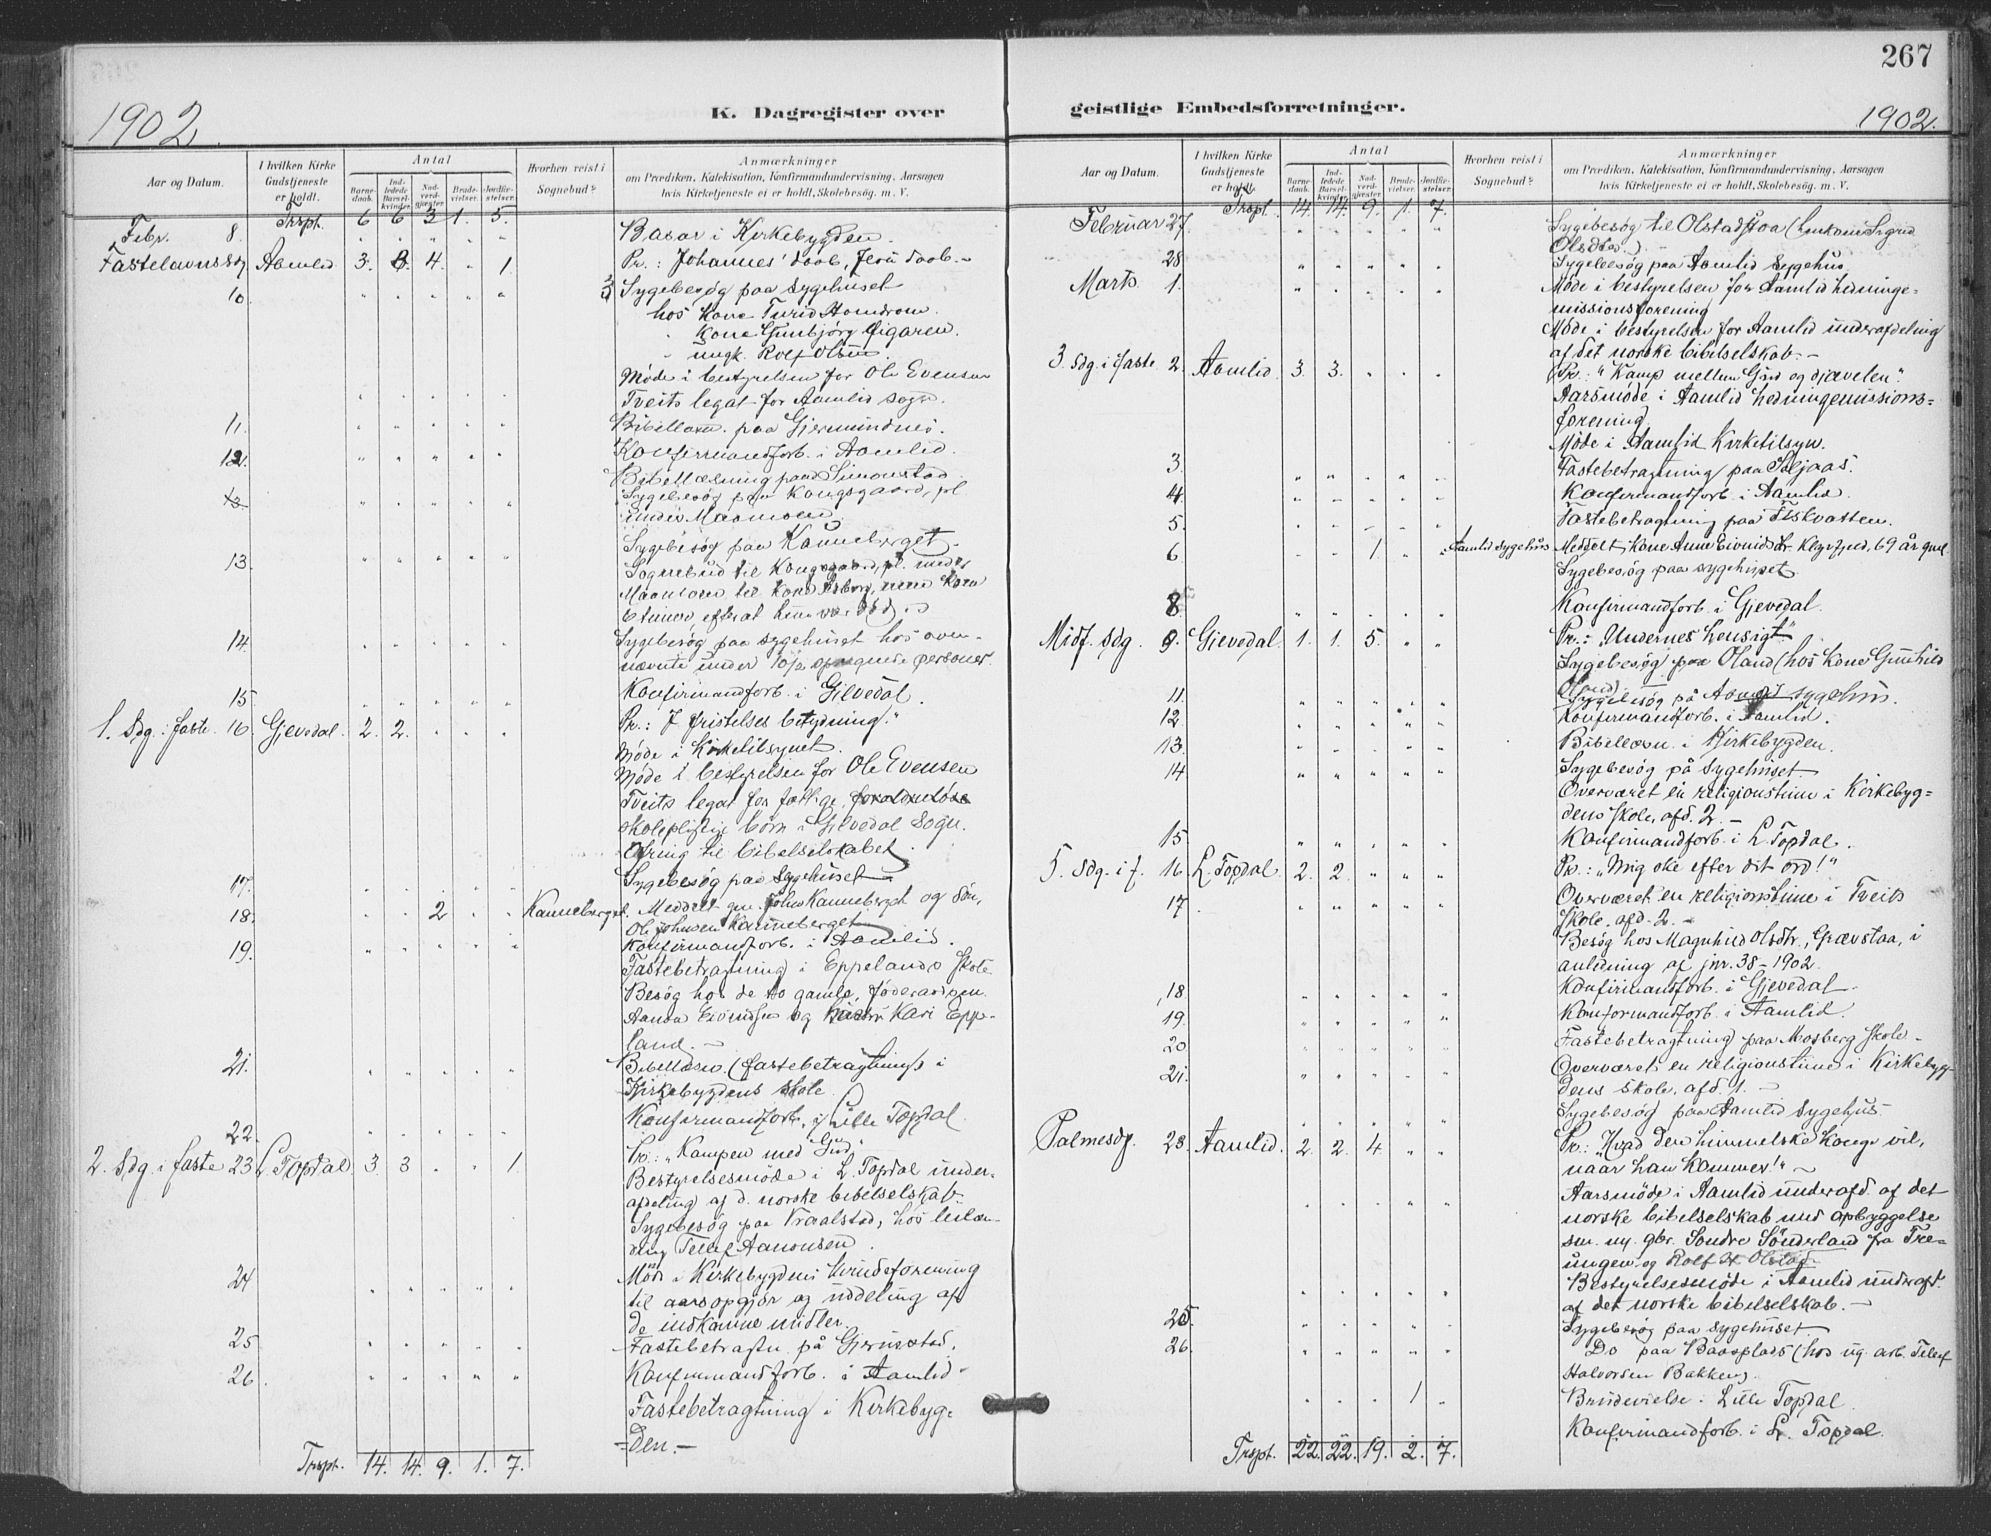 267
1902.
K. Dagregister over
geistlige Embedsforretninger.
1902.
Aar og Datum.
I hvilken Kirke Gudstjeneste er holdt.
Antal
Barnedaab.
Indledede Barselkvinder.
Nadverdgjæster.
Brudevielser.
Jordfæstelser.
Hvorhen reist i Sognebud?
Anmærkninger
om Prædiken, Katekisation, Konfirmandundervisning, Aarsagen
hvis Kirketjeneste ei er holdt, Skolebesøg. m. V.
Trspt. 6 6 3 1. 5.
Febr. 8. Basar i Kirkebygden.
Fastelavnssdg Aamlid 3. 3. 4. 1. Pr.: Johannes' daab, Jesu daab.
10. Sygebesøg paa sygehuset
hos Kone Turid
Kone Gunbjørg
ungk. Rolf Olsen.
Møde i bestyrelsen for Ole Evensen
Tveits legat for Aamlid sogn.
11. Bibellæsn. paa Gjermundnes.
12. Konfirmandforb. i Aamlid.
Bibellæsning paa Simonstad.
Sygebesøg paa Kongsgaard, pl.
under
Sygebesøg paa Kanneberget.
13. Sognebud til
efterat hun var død.
14. Sygebesøg paa sygehuset hos oven-
nævnte under 10/2 opregnede personer.
15. Konfirmandforb. i Gjevedal.
1. Sdg. i faste 16 Gjevedal. 2. 2. Pr.: J fristelses betydning."
Møde i Kirketilsynet.
Møde i bestyrelsen for Ole Evensen
Tveits legat for fattige, forældreløse
skolepligtige børn i Gjevedal Sogn.
Ofring til bibelselskabet.
17. Sygebesøg paa sygehuset
18. 2 Kanneberget. Meddelt gm. John Kanneberget og søn,
Ole Johnsen Kanneberget
19. Konfirmandforb. i Aamlid.
Fastebetragtning i Eppelands skole
Besøg hos de to gamle, føderaadsm.
og Kari Epp-
land. –
21. Bibellæsn. (fastebetragtning) i
Kirkebygdens skole.
22. Konfirmandforb. i Lille Topdal.
2. Sdg. i faste 23 L. Topdal 3. 3. 1. Pr.: „Kampen med Gud"
Bestyrelsesmøde i L. Topdal under-
afdeling af d. norske bibelselskab.
Sygebesøg paa Vraalstad, hos leilæn-
ding Tellef Aanonsen.
24 Møde i Kirkebygdens kvindeforening
til aarsopgjør og uddeling af
de indkomne midler.
25 Fastebetragtn. på
26. Konfirmandforb. i Aamlid
Fastebetragtning i Kirkebyg-
den. –
Trspt. 14. 14. 9. 1. 7.
Aar og Datum.
I hvilken Kirke Gudstjeneste er holdt.
Antal
Barnedaab.
Indledede Barselkvinder.
Nadverdgjæster.
Brudevielser.
Jordfæstelser.
Hvorhen reist i Sognebud?
Anmærkninger
om Prædiken, Katekisation, Konfirmandundervisning, Aarsagen
hvis Kirketjeneste ei er holdt, Skolebesøg. m. V.
Trspt. 14. 14. 9. 1. 7.
Februar 27. Sygebesøg til Olstadstoa (hos Sigrid
Olsdtr.)
28. Sygebesøg paa Aamlid Sygehus
Marts 1. Møde i bestyrelsen for Aamlid hedninge-
missionsforening
Møde i bestyrelsen for Aamlid underafdeling
af det norske bibelselskab. –
3. Sdg. i faste 2. Aamlid. 3. 3. Pr.: "Kamp mellem Gud og djævelen".
Aarsmøde i Aamlid hedningemissions-
forening.
Møde i Aamlid Kirketilsyn.
3. Fastebetragtning paa Seljaas.
4. Konfirmandforb. i Aamlid.
5. Fastebetragtning paa
6. 1 Aamlid sygehus Meddelt Kone Anne 69 år gml.
Sygebesøg paa sygehuset
8. Konfirmandforb. i Gjevedal.
Midf. sdg. 9. Gjevedal. 1. 1. 5. Pr.: Undernes hensigt."
Sygebesøg paa Oland (hos Kone Gunhild
Oland).
11. Sygebesøg på Aamlid sygehus.
12 Konfirmandforb. i Aamlid.
13. Bibellæsn. i Kirkebygden.
14 Sygebesøg på sygehuset.
Overværet en religionstime i Kirkebyg-
dens skole, afd. 2. –
15 Konfirmandforb. i L Topdal.
5. Sdg. i f. 16 L. Topdal 2. 2. Pr.: „Mig ske efter dit ord!"
17 Overværet en religionstime i Tveits
skole. afd. 2. –
Besøg hos Magnhild Olsdtr., Grævstaa, i
anledning af jnr. 38 – 1902.
18. Konfirmandforb. i Gjevedal.
19. Konfirmandforb. i Aamlid.
20 Fastebetragtning paa Mosberg skole –
21. Overværet en religionstime i Kirkebyg-
dens skole, afd. 1. –
Sygebesøg paa Aamlid sygehus.
Palmesdg. 23. Aamlid. 2. 2. 4. Pr: „Hvad den himmelske konge vil,
naar han kommer!" –
Aarsmøde i Aamlid underafd. af det
norske bibelselskab med opbyggelse
sm. m. gbr. Sondre Sønderland fra Tre-
ungen og Rolf H Olstad.
Bestyrelsesmøde i Aamlid underafd.
af det norske bibelselskab. –
25 Sygebesøg paa sygehuset
26. Do paa Baasplads (hos ug. arb. Tellef
Halvorsen Bakken).
1 Brudevielse i Lille Topdal.
Konfirmandforb. i L. Topdal.
Trspt. 22. 22. 19. 2. 7.